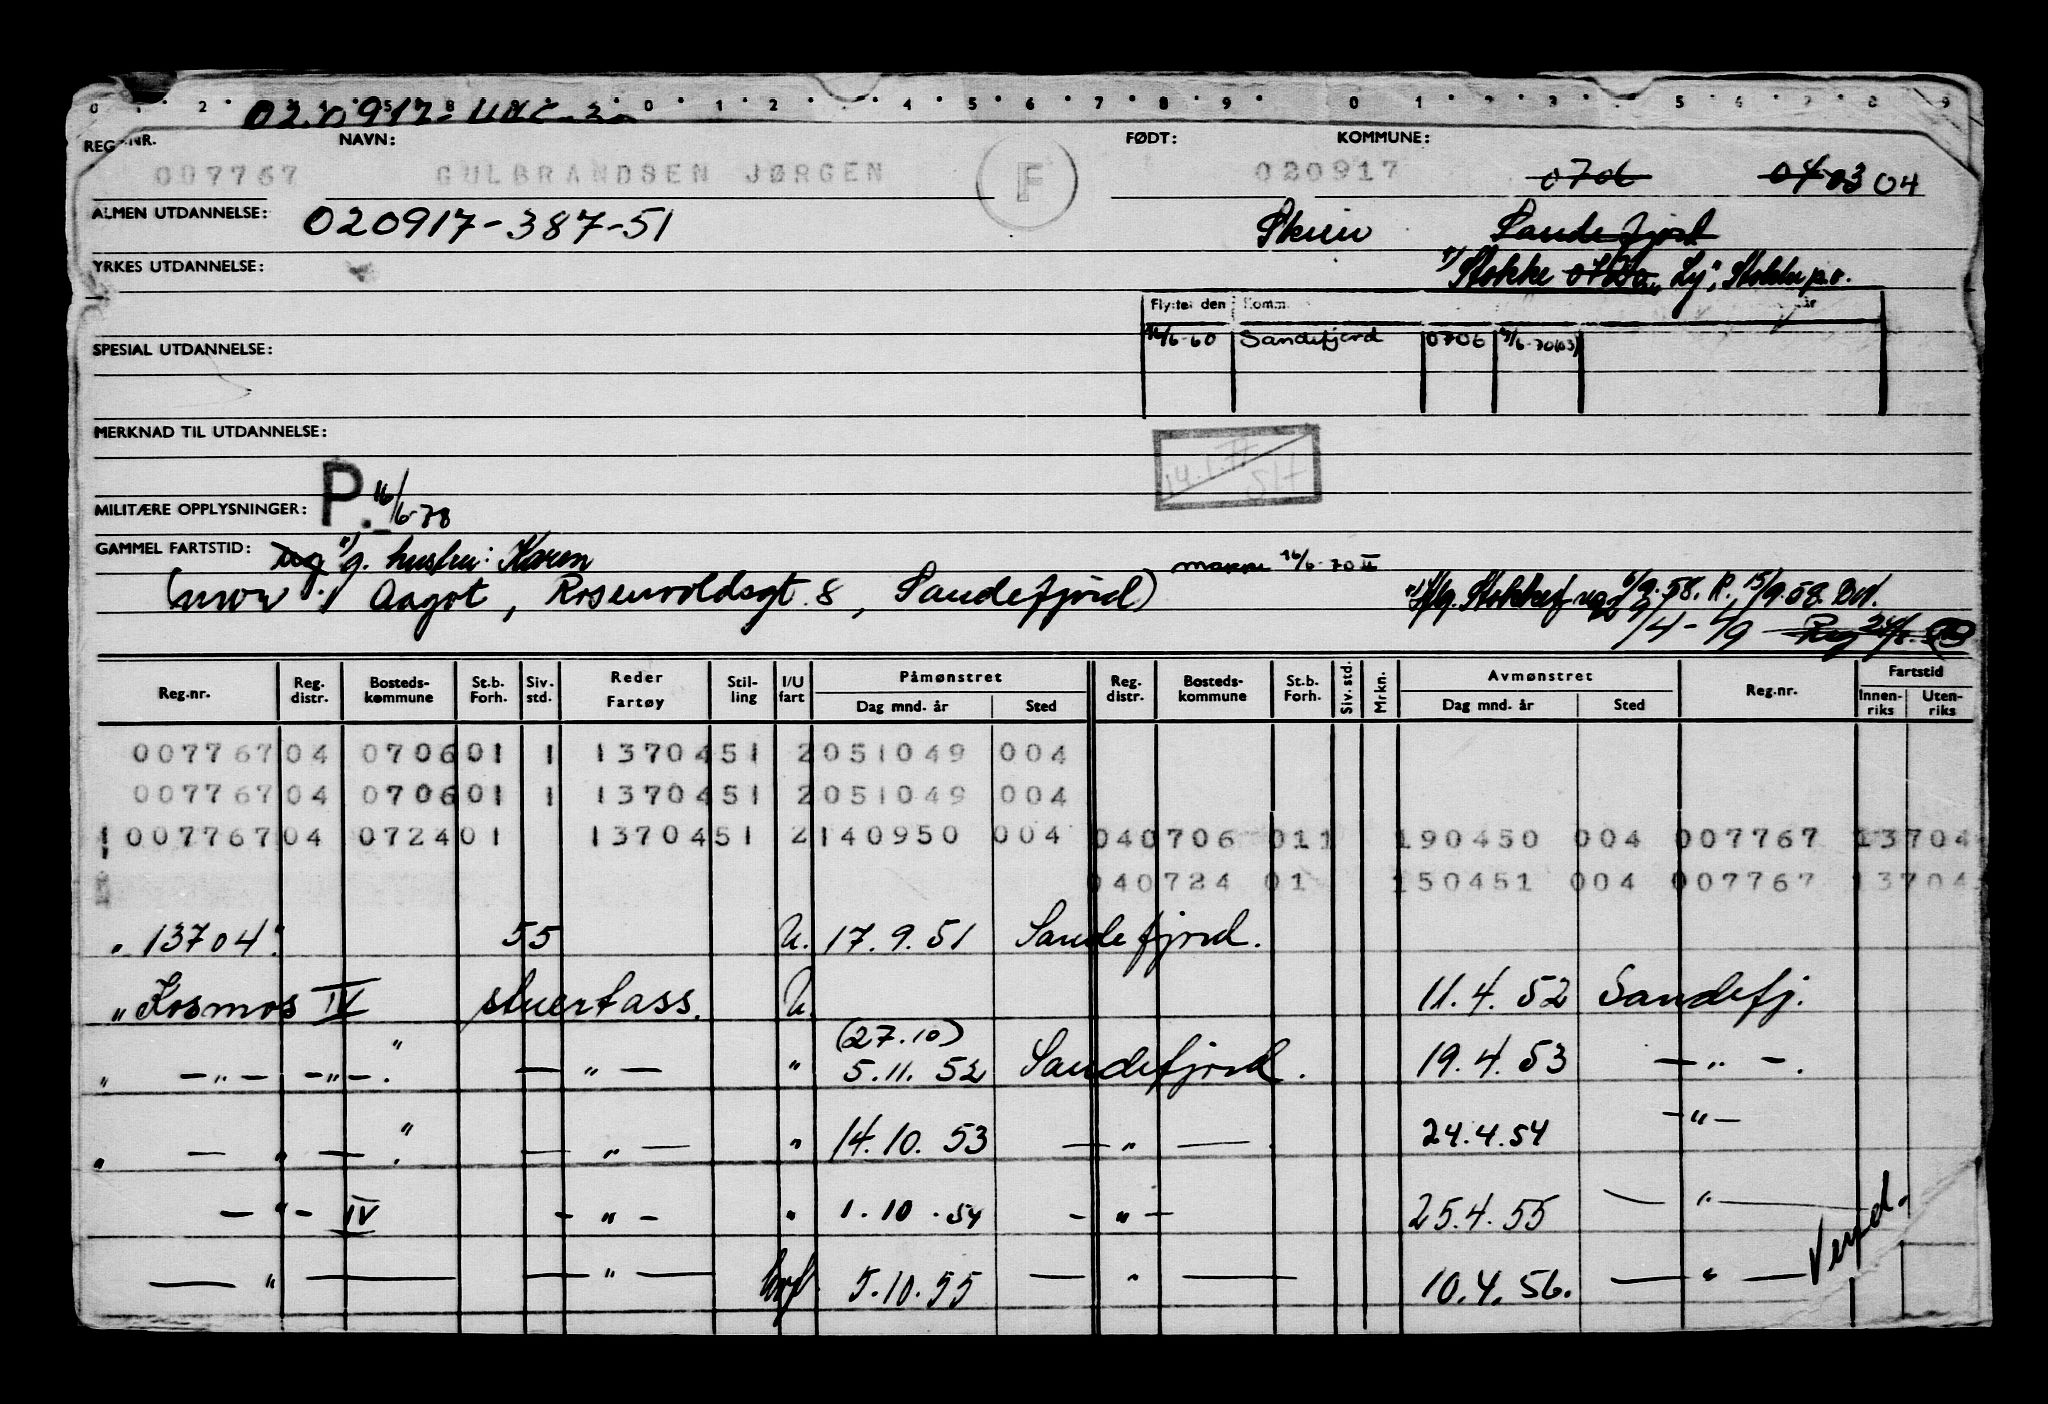 0 1 2 4 5 8 0 1 2 4 5 6 7 8 9 0 1 2 3 5 6 7 8 9
REG.-NR. NAVN: FØDT: KOMMUNE:
007767 GULBRANDSEN JØRGEN F 020917 0706 04 03 04
ALMEN UTDANNELSE: 020917-387-51 Skien Sandefjord
YRKES UTDANNELSE: Stokke Stokke p.o.
Flyttet den Komm. år
16/6-60 Sandefjord 0706
SPESIAL UTDANNELSE:
MERKNAD TIL UTDANNELSE:
14.1.77
MILITÆRE OPPLYSNINGER: P. 16/6-78
GAMMEL FARTSTID: g. hustru: Karen
(mor: Aagot, Rosenvoldsgt. 8, Sandefjord) 16/6-70
Reg.nr. Reg. distr. Bosteds-kommune St.b. Forh. Siv. std. Reder Fartøy Stil-ling I/U fart Påmønstret Dag mnd. år Sted Reg. distr. Bosteds-kommune St.b. Forh. Siv. std. Mrkn. Avmønstret Dag mnd. år Sted Reg.nr. Fartstid Innen-riks Uten-riks
007767 04 0706 01 1 13704 51 2 051049 004
007767 04 0706 01 1 13704 51 2 051049 004
007767 04 0724 01 13704 51 2 140950 004 04 0706 01 1 190450 004 007767 13704
04 0724 01 150451 004 007767 13704
"13704" 55 U. 17.9.51 Sandefjord.
"Kosmos IV stuertass. U. 11.4.52 Sandefj.
(27.10)
" — " — — " — . " — " — " 5.11.52 Sandefjord. 19.4.53 — " — .
" — " — " — " — " 14.10.53 — " — . 24.4.54 — " —
— " — IV — " — " 1.10.54 — " — 25.4.55 — " —
— " — — " — 5.10.55 — " — 10.4.56. — " —
Vend.